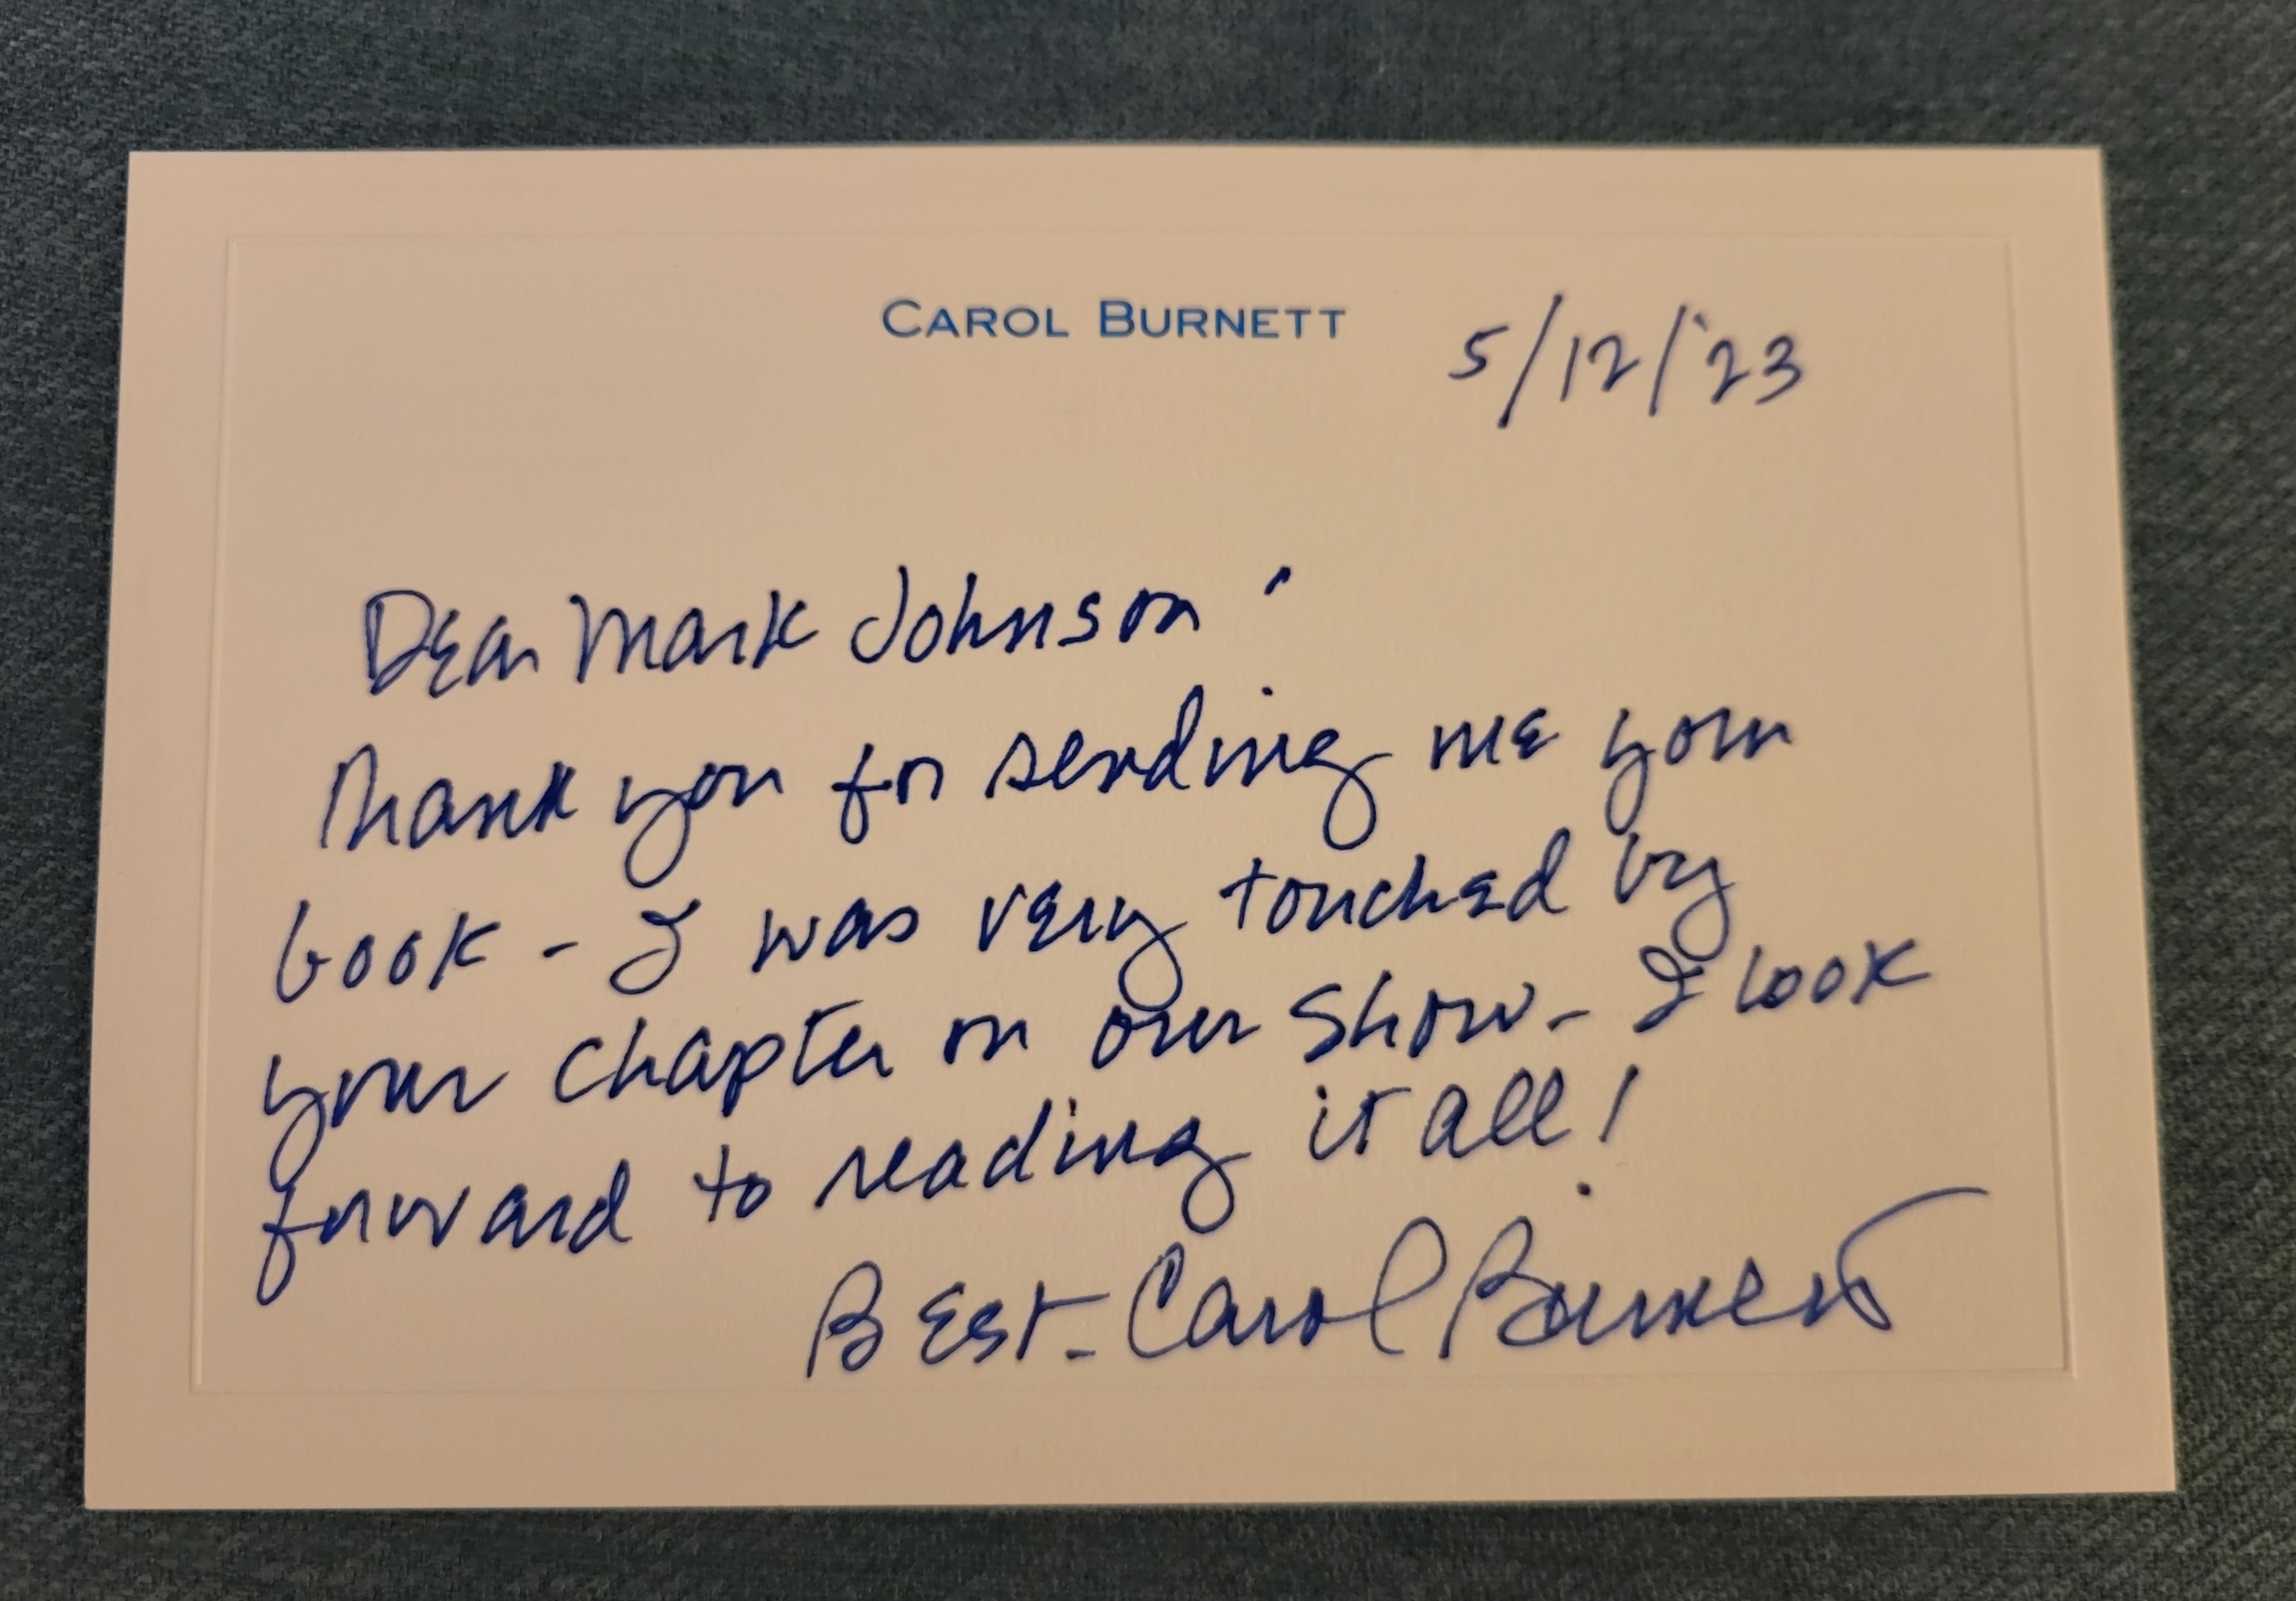 CAROL BURNETT
5/12/'23
Dear Mark Johnson -
Thank you for sending me your
book - I was very touched by
your chapter on our show - I look
forward to reading it all!
Best - Carol Burnett